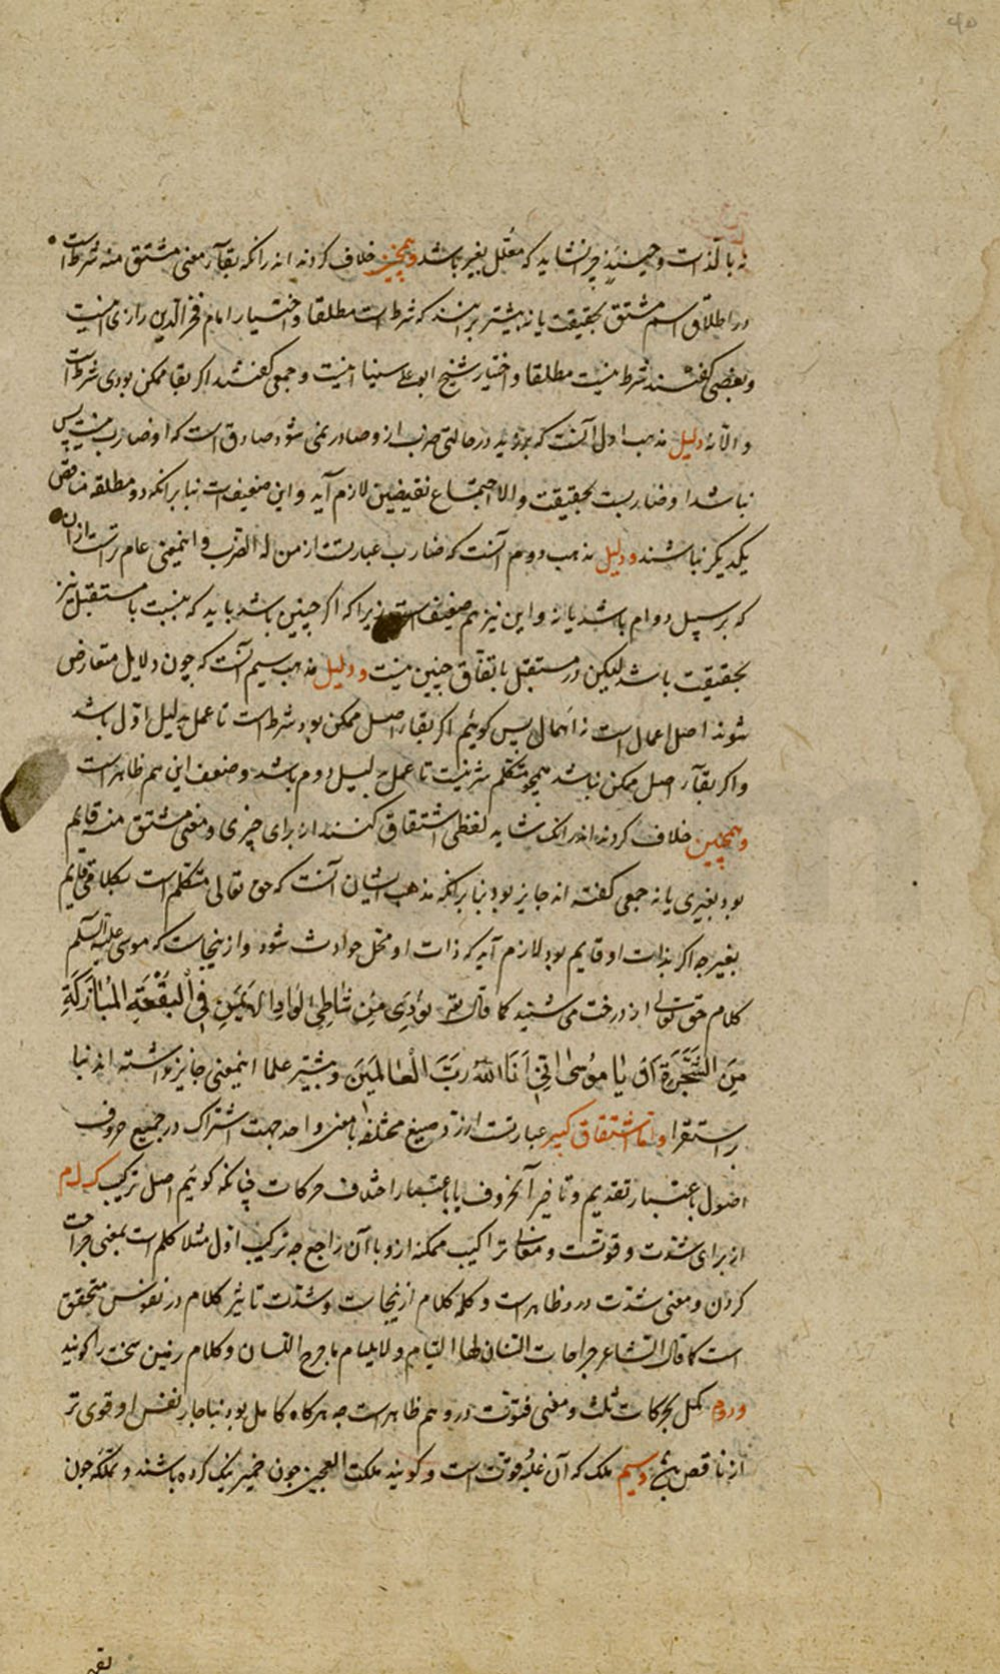 نه بالذات و حینئذ چرا نشاید که معلل بغیر باشد و همچنین خلاف کرده‌اند در آنکه بقاء معنی مشتق منه شرط است
در اطلاق اسم مشتق بحقیقت یا نه بیشتر برانند که شرط است مطلقا و اختیار امام فخر الدین رازی اینست
و بعضی گفتند شرط نیست مطلقا و اختیار شیخ ابو علی سینا اینست و جمعی گفتند اگر بقا ممکن بودی شرط است
و الا نه دلیل مذهب اول آنست که بر زید در حالتی که ضرب ازو صادر نمی شود صادق است که او ضارب نیست پس
نباشد او ضارب بحقیقت و الا اجتماع نقیضین لازم آید و این ضعیف است بنا بر آنکه دو مطلقه مناقض
یکدیگر نباشند و دلیل مذهب دوم آنست که ضارب عبارتست از من له الضرب و اینمعنی عام ترست از آن
که بر سبیل دوام باشد یا نه و این نیز هم ضعیف است زیرا که اگر چنین باشد باید که بنسبت با مستقبل نیز
بحقیقت باشد لیکن در مستقبل باتفاق چنین نیست و دلیل مذهب سیم آنست که چون دلایل متعارض
شوند اصل اعمال است نه اهمال پس گوئیم اگر بقاء اصل ممکن بود شرط است تا عمل بدلیل اول باشد
و اگر بقاء اصل ممکن نباشد همچو متکلم شرط نیست تا عمل بدلیل دوم باشد و ضعف این هم ظاهر است
و همچنین خلاف کرده‌اند در آنک شاید لفظی اشتقاق کنند از برای چیزی و معنی مشتق منه قایم
بود بغیری یا نه جمعی گفته اند جایز بود بنا بر آنکه مذهب ایشان آنست که حق تعالی متکلم است بکلامی قایم
بغیر چه اگر بذات او قایم بود لازم آید که ذات او محل حوادث شود و ازینجاست که موسی علیه السلم
کلام حق تعالی از درخت می شنید کما قال تع نُودِیَ مِن شَاطِئِ الوَادِ الأَیمَنِ فِی البُقعَةِ المُبَارَکَةِ
مِنَ الشَّجَرَةِ أَن یَا مُوسَی إِنِّی أَنَا اللهُ رَبُّ العَالَمِینَ و بیشتر علما اینمعنی جایز نداشته اند بنا
بر استقرا و اما اشتقاق کبیر عبارتست از رد صیغ مختلفه با معنی واحد جهت اشتراک در جمیع حروف
اصول باعتبار تقدیم و تاخیر آنحروف یا باعتبار اختلاف حرکات چنانکه گوئیم اصل ترکیب ک ل م
از برای شدت و قوتست و معانی تراکیب ممکنه ازو با آن راجع چه ترکیب اول مثلا کلم است بمعنی جراحت
کردن و معنی شدت درو ظاهر است و کلمه کلام ازینجاست و شدت تاثیر کلام در نفوس متحقق
است کما قال الشاعر جراحات السنان لها التیام و لا یلتام ما جرح اللسان و کلام زمین سخت را گویند
و دوم کمل بحرکات ثلث و معنی قوت درو هم ظاهر است چه هرگاه کامل بود بناچار نفس او قوی تر
از ناقص باشد و سیم ملک که آن غلبه و قوتست و گویند ملکت العجین چون خمیر نیک کرده باشند و تملکه چون